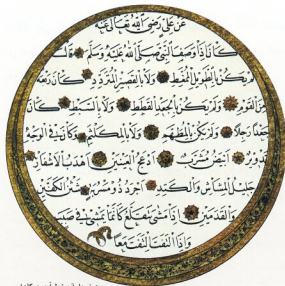 عن علي رضي الله تعالى عنه
كان اذا وصف النبي صلى الله عليه وسلم قال
لم يكن بالطويل الممغط ولا بالقصير المتردد كان ربعة
من القوم ولم يكن بالجعد القطط ولا بالسبط كان
جعدا رجلا ولم يكن بالمطهم ولا بالمكلثم وكان في الوجه
تدوير ابيض مشرب ادعج العينين اهدب الاشفار
جليل المشاش والكتد اجرد ذو مسربة شثن الكفين
والقدمين اذا مشى تقلع كانما يمشي في صبب
واذا التفت التفت معا